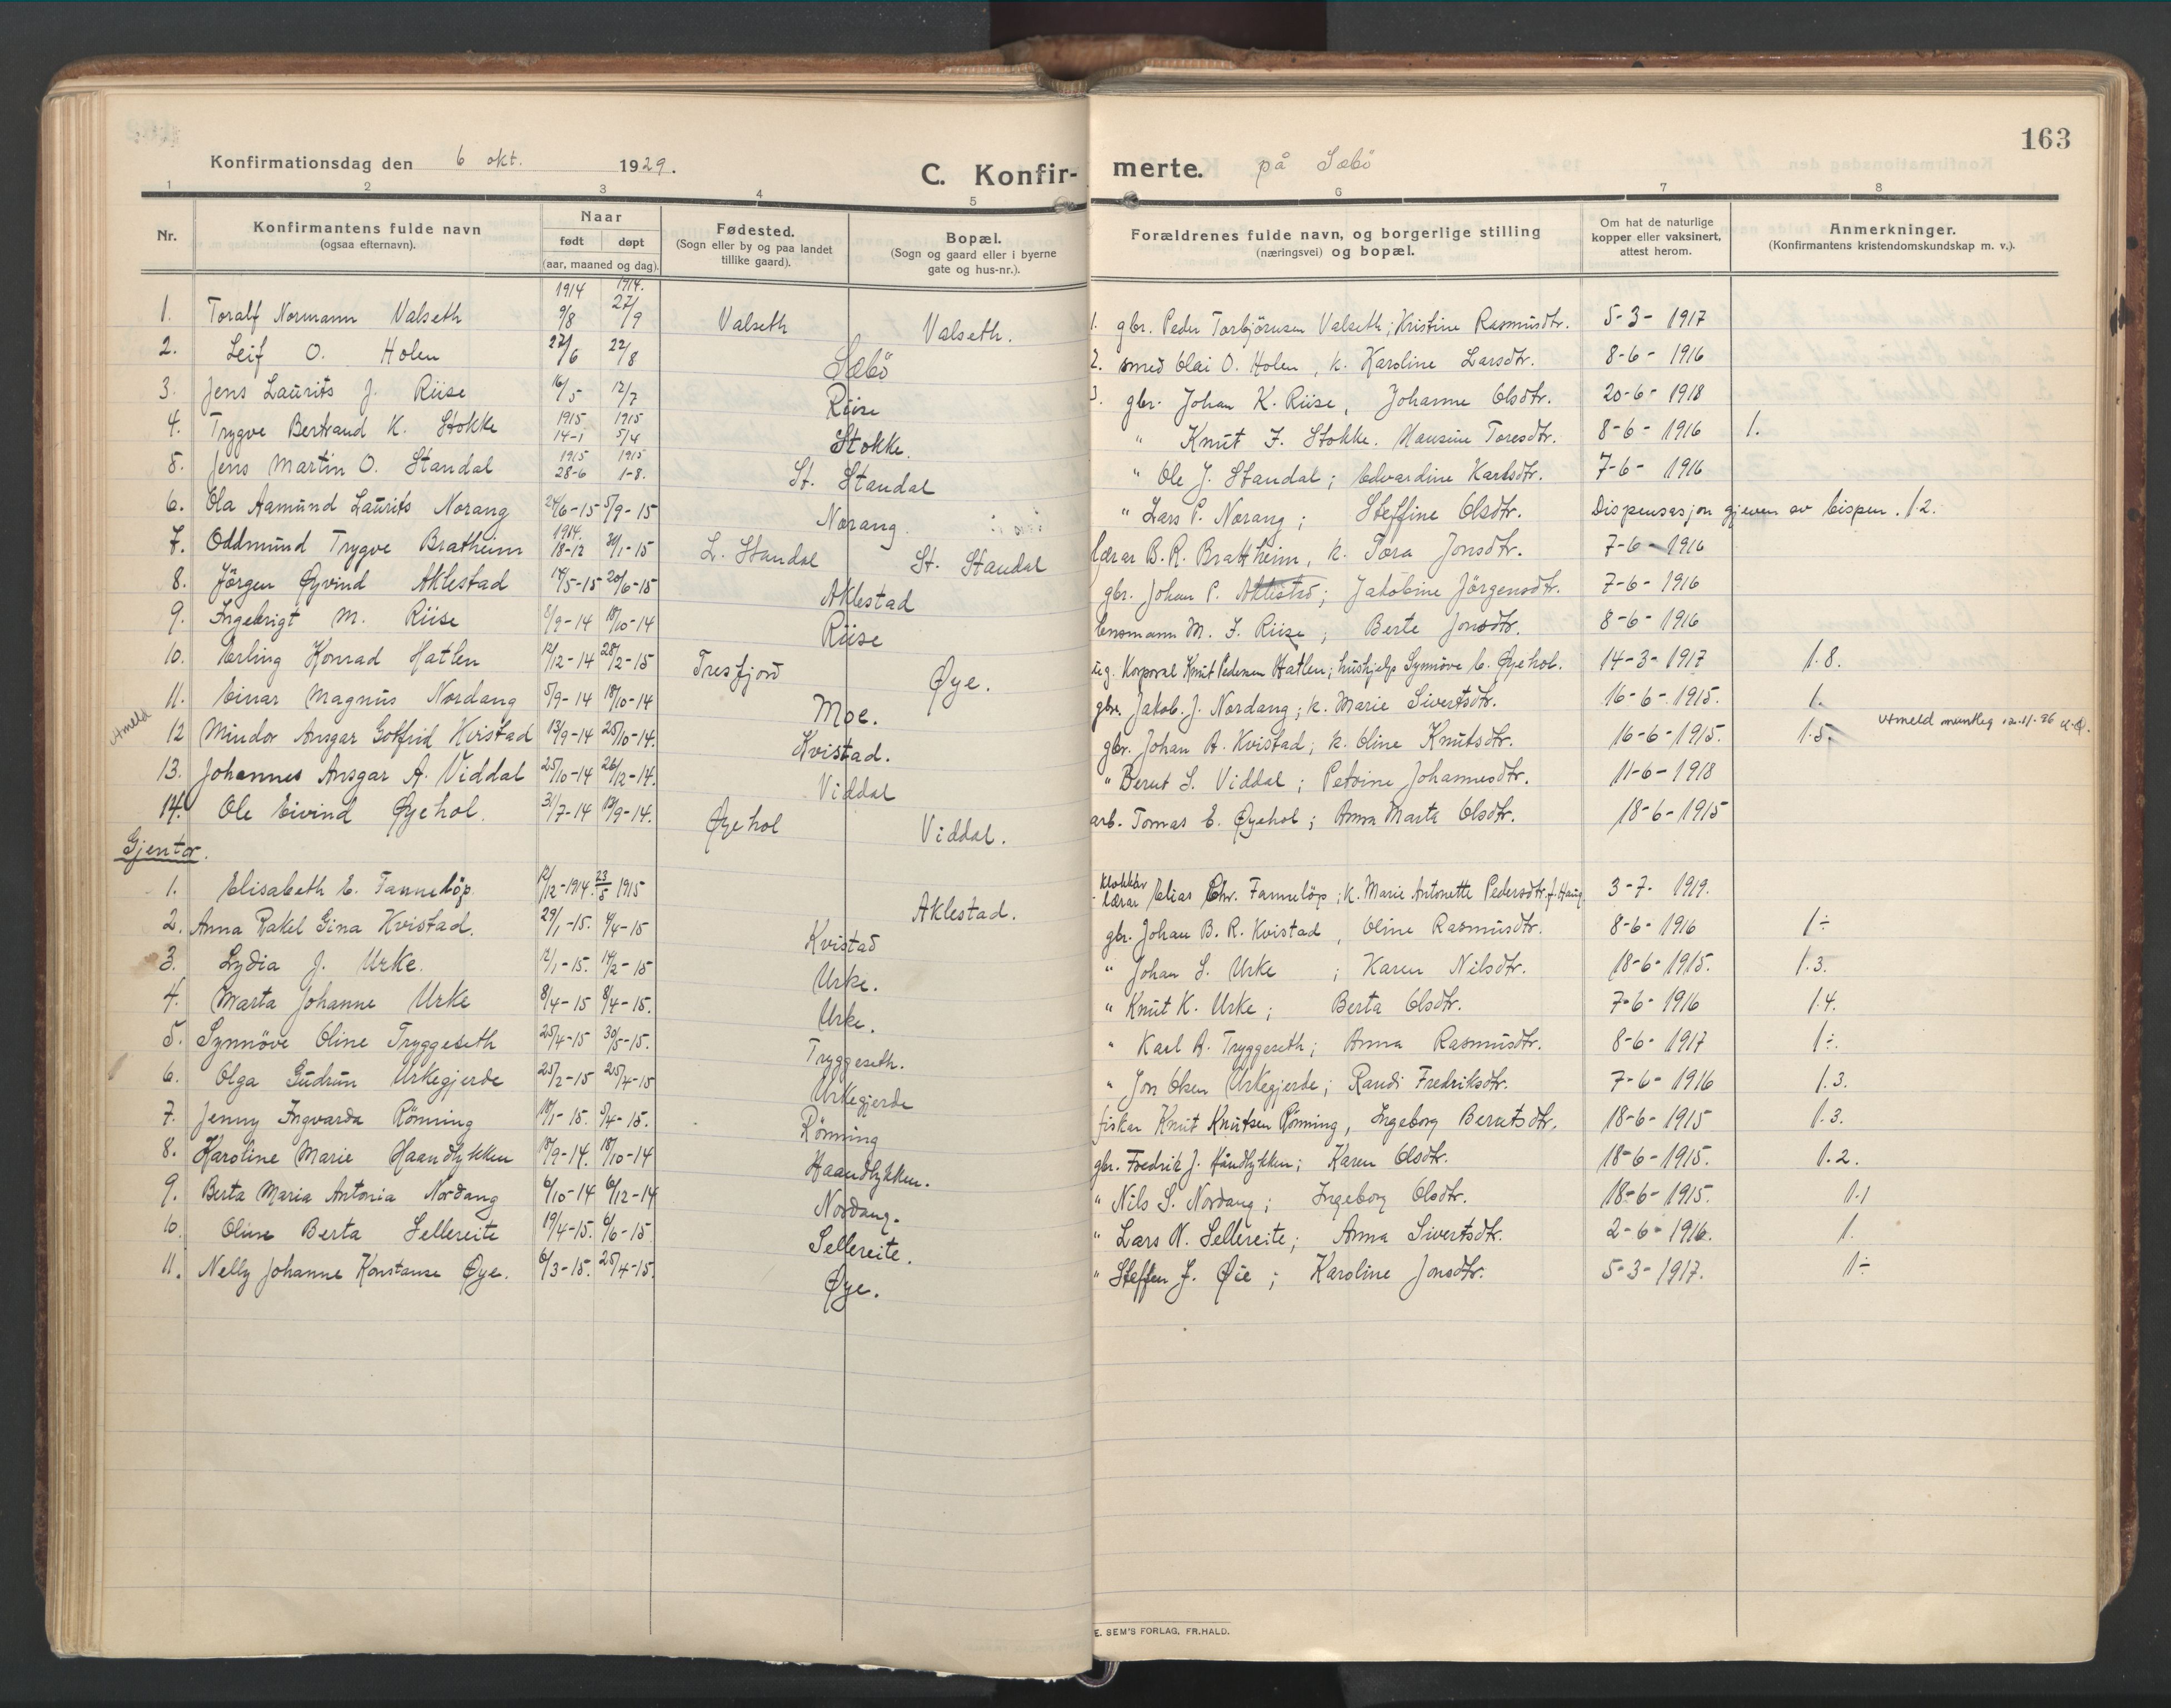 163
Konfirmationsdag den 6 okt. 1929. C. Konfir- merte. på Sæbö
1 2 3 4 5 6 7 8
Nr. Konfirmantens fulde navn (ogsaa efternavn). Naar født døpt (aar, maaned og dag). Fødested. (Sogn eller by og paa landet tillike gaard). Bopæl. (Sogn og gaard eller i byerne gate og hus-nr.). Forældrenes fulde navn, og borgerlige stilling (næringsvei) og bopæl. Om hat de naturlige kopper eller vaksinert, attest herom. Anmerkninger. (Konfirmantens kristendomskundskap m. v.).
1914 1914.
1. Toralf Normann Valseth 9/8 27/9 Valseth Valseth. 1. gbr. Peder Torbjörnsen Valseth; Kristine Rasmusdtr. 5-3-1917
2. Leif O. Holen 27/6 22/8 Sæbö 2. smed Olai O. Holen, k. Karoline Larsdtr. 8-6-1916
3. Jens Laurits J. Riise 16/5 12/7 Riise 3. gbr. Johan K. Riise, Johanne Olsdtr. 20-6-1918
1915 1915
4. Trygve Bertrand K. Stokke 14-1 5/4 Stokke. " Knut F. Stokke. Hansine Toresdtr. 8-6-1916 1.
1915 1915
5. Jens Martin O. Standal 28-6 1-8. St. Standal " Ole J. Standal; Edvardine Karlsdtr. 7-6-1916
6. Ola Aamund Laurits Norang 24/6-15 5/9-15 Norang. " Lars P. Norang; Steffine Olsdtr. Dispensasjon gjeven av bispen. 1.2.
1914.
7. Oddmund Trygve Bratheim 18-12 31/1-15 L. Standal St. Standal lærar B. R. Brattheim, k. Tora Jonsdtr. 7-6-1916
8. Jörgen Øyvind Aklestad 14/5-15 20/6-15 Aklestad gbr. Johan P. Aklestad; Jakobine Jörgensdtr. 7-6-1916
9. Ingebrigt M. Riise 8/9-14 18/10-14 Riise lensmann M. F. Riise; Berte Jonsdtr. 8-6-1916
10. Erling Konrad Hatlen 12/12-14 28/2-15 Tresfjord Øye. ug. Korporal Knut Pedersen Hatlen; hushjelp Synnöve E. Øyehol. 14-3-1917 1.8.
11. Einar Magnus Nordang 5/9-14 18/10-14 Moe. gbr. Jakob. J. Nordang; k. Marie Sivertsdtr. 16-6-1915. 1.
Utmeld 12 Mindor Ansgar Gotfrid Kvistad 13/9-14 25/10-14. Kvistad. gbr. Johan A. Kvistad; k. Oline Knutsdtr. 16-6-1915. 1.5. Utmeld munleg
13. Johannes Ansgar A. Viddal 25/10-14 26/12-14. Viddal " Berut S. Viddal; Petrine Johannesdtr. 11-6-1918
14. Ole Eivind Øyehol. 31/7-14 13/9-14. Øyehol Viddal. arb. Tomas E. Øyehol; Anna Marta Olsdtr. 18-6-1915
Gjentor.
1. Elisabeth E. Fannelöp. 12/12-1914. 23/5 1915 Aklestad. Klokkar lærar Elias Chr. Fannelöp; k. Marie Antonette Pedersdtr. f. Haug. 3-7-1919.
2. Anna Rakel Gina Kvistad. 29/1-15. 4/4-15 Kvistad gbr. Johan B. R. Kvistad, Oline Rasmusdtr. 8-6-1916 1÷
3. Lydia J. Urke. 12/1-15. 14/2-15 Urke. " Johan S. Urke; Karen Nilsdtr. 18-6-1915. 1.3.
4. Marta Johanne Urke 8/4-15 8/4-15. Urke. " Knut K. Urke; Berta Olsdtr. 7-6-1916 1.4.
5. Synnöve Oline Tryggeseth 25/4-15 30/5-15. Tryggeseth. " Karl A. Tryggeseth; Anna Rasmusdtr. 8-6-1917 1÷.
6. Olga Gudrun Urkegjerde 25/2-15 25/4-15 Urkegjerde " Jon Olsen Urkegjerde; Randi Fredriksdtr. 7-6-1916 1.3.
7. Jenny Ingvarda Rönning 18/1-15. 5/4-15. Rönning fiskar Knut Knutsen Rönning, Ingeborg Berutsdtr. 18-6-1915 1.3.
8. Karoline Marie Haandlykken 18/9-14. 18/10-14 Haandlykken. gbr. Fredrik J. Håndlykken; Karen Olsdtr. 18-6-1915. 1.2.
9. Berta Maria Antonia Nordang 6/10-14 6/12-14 Nordang. " Nils S. Nordang; Ingeborg Olsdtr. 18-6-1915. 1.1
10. Oline Berta Sellereite 19/4-15. 6/6-15 Sellereite. " Lars N. Sellereite; Anna Sivertsdtr. 2-6-1916. 1.
11. Nelly Johanne Konstanse Øye. 6/3-15. 25/4-15. Øye. " Steffen J. Øie; Karoline Jonsdtr. 5-3-1917. 1÷
E. SEM'S FORLAG, FR.HALD.